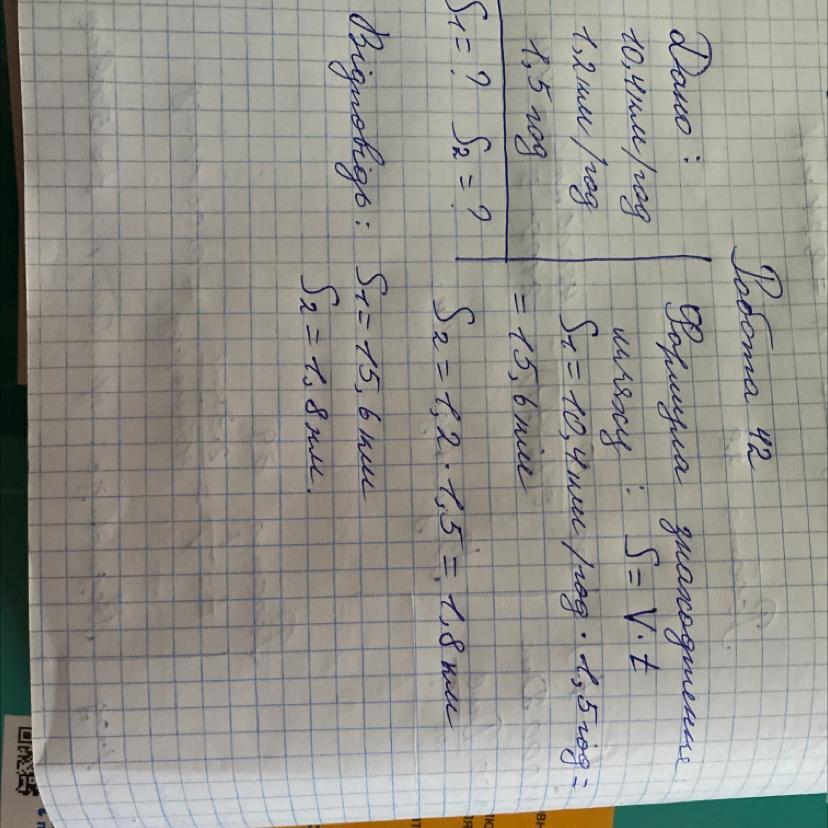 Робота 42
Дано:
10,4 км/год
1,2 км/год
1,5 год
S1 = ? S2 = ?
Формула знаходження
шляху: S = V · t
S1 = 10,4 км/год · 1,5 год =
= 15,6 км
S2 = 1,2 · 1,5 = 1,8 км
Відповідь: S1 = 15,6 км
S2 = 1,8 км.